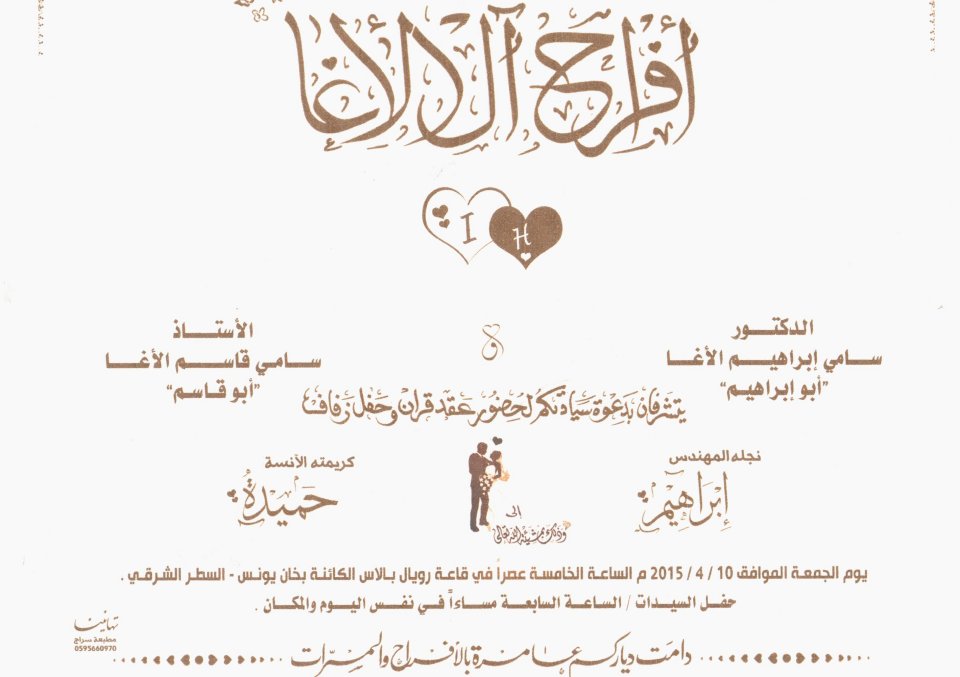 أفراح آل الأغا
I H
الدكتــور
سـامي إبراهيـم الأغـا
"أبو إبراهيم"
و
الأستـاذ
سـامي قاسـم الأغـا
"أبو قاسم"
يتشرفان بدعوة سيادتكم لحضور عقد قران وحفل زفاف
نجله المهندس
إبراهيم
إلى
كريمته الآنسة
حميدة
وذلك بمشيئة الله تعالى
يوم الجمعة الموافق 10 / 4 / 2015 م الساعة الخامسة عصراً في قاعة رويال بالاس الكائنة بخان يونس - السطر الشرقي .
حفل السيدات / الساعة السابعة مساءاً في نفس اليوم والمكان .
تهانينا
مطبعة سراج
0595660970
دامت دياركم عامرة بالأفراح والمسرات